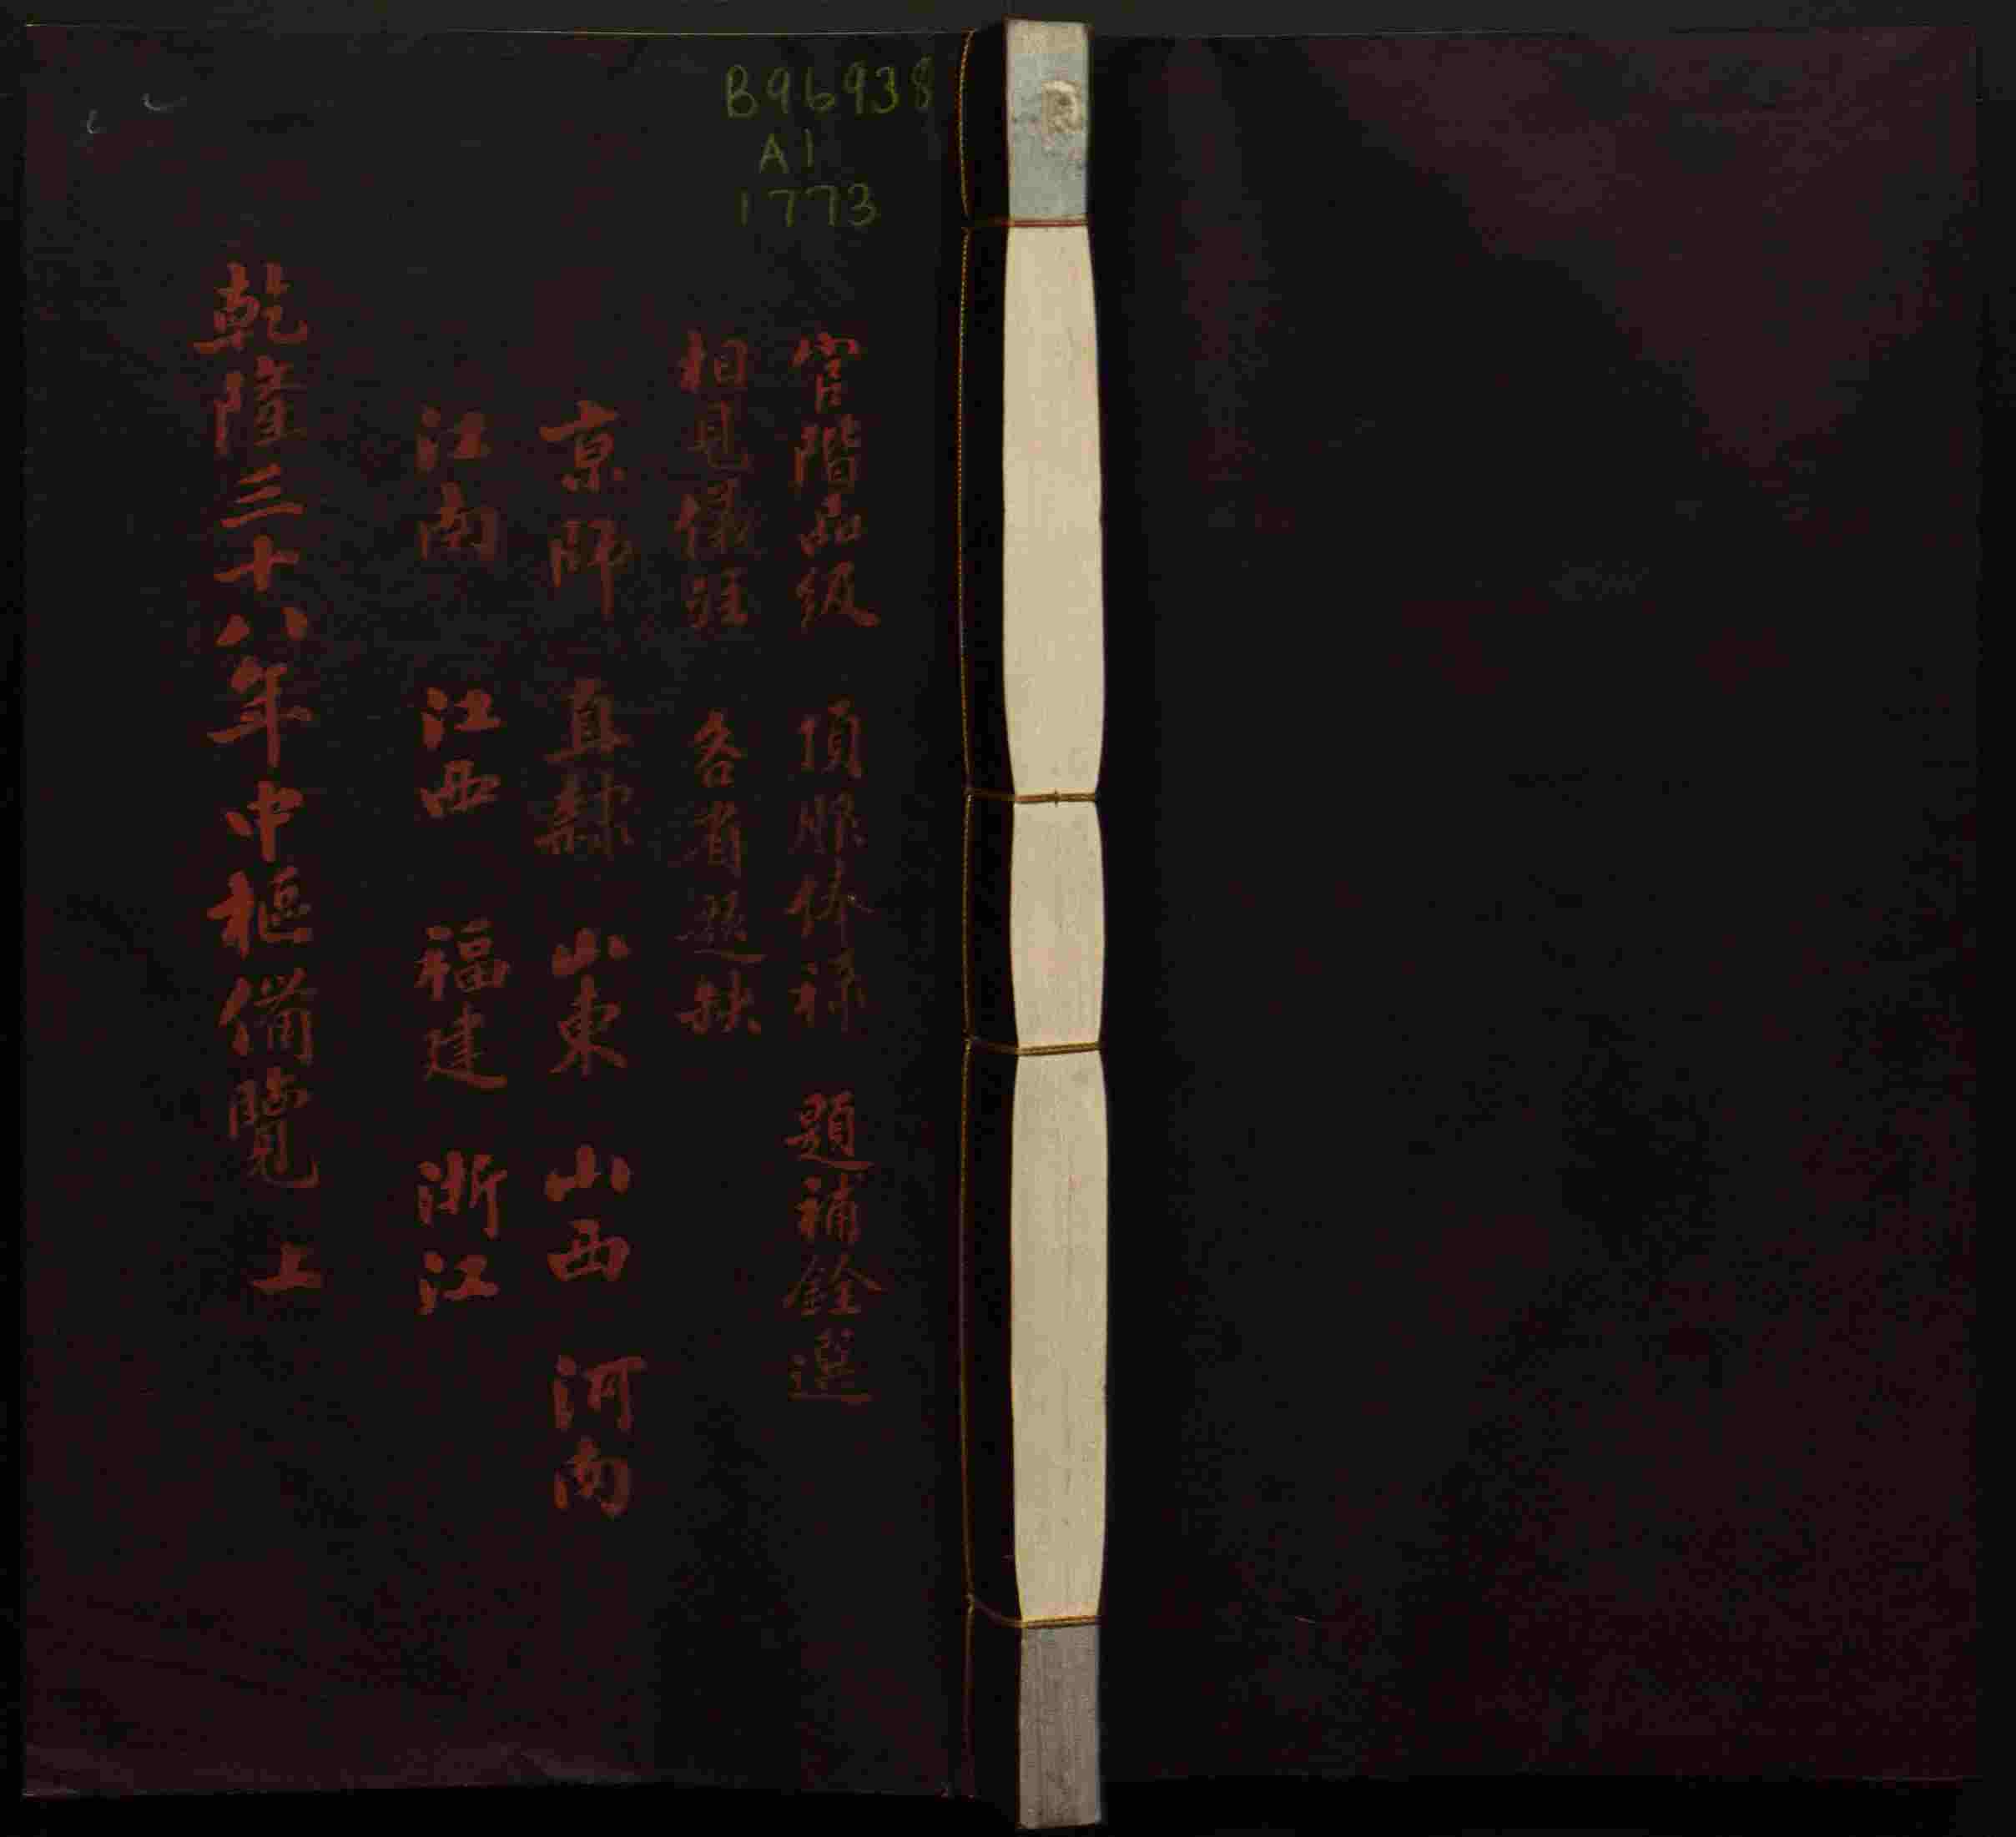 B96938
A1
1773
官階品級 頂服俸祿 題補銓選
相見儀註 各省題缺
京師 直隸 山東 山西 河南
江南 江西 福建 浙江
乾隆三十八年中樞備覽 上